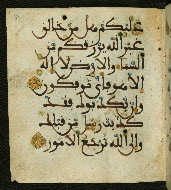 عليكم هل من خالق
غير الله يرزقكم من
السماء والارض لا اله
الا هو فانى توفكون
وان يكذبوك فقد
كذبت رسل من قبلك
والى الله ترجع الامور